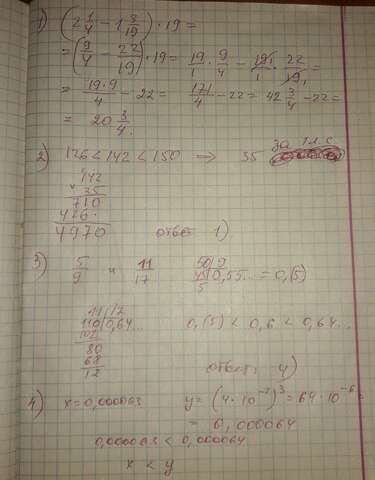 1) (2 1/4 - 1 3/19) · 19 =
= (9/4 - 22/19) · 19 = 19/1 · 9/4 - 19/1 · 22/19 =
= 19·9/4 - 22 = 171/4 - 22 = 42 3/4 - 22 =
= 20 3/4.
2) 126 < 142 < 150 ⇒ 35 за 1 л.с
142
× 35
710
426·
4970 ответ 1)
3) 5/9 и 11/17 50|9 45|0,55.. = 0,(5)
5
11|17
110|0,64.. 0,(5) < 0,6 < 0,64..
102
80
68 ответ: 4)
12
4) x = 0,000063 y = (4·10⁻²)³ = 64·10⁻⁶ =
= 0,000064
0,000063 < 0,000064
x < y